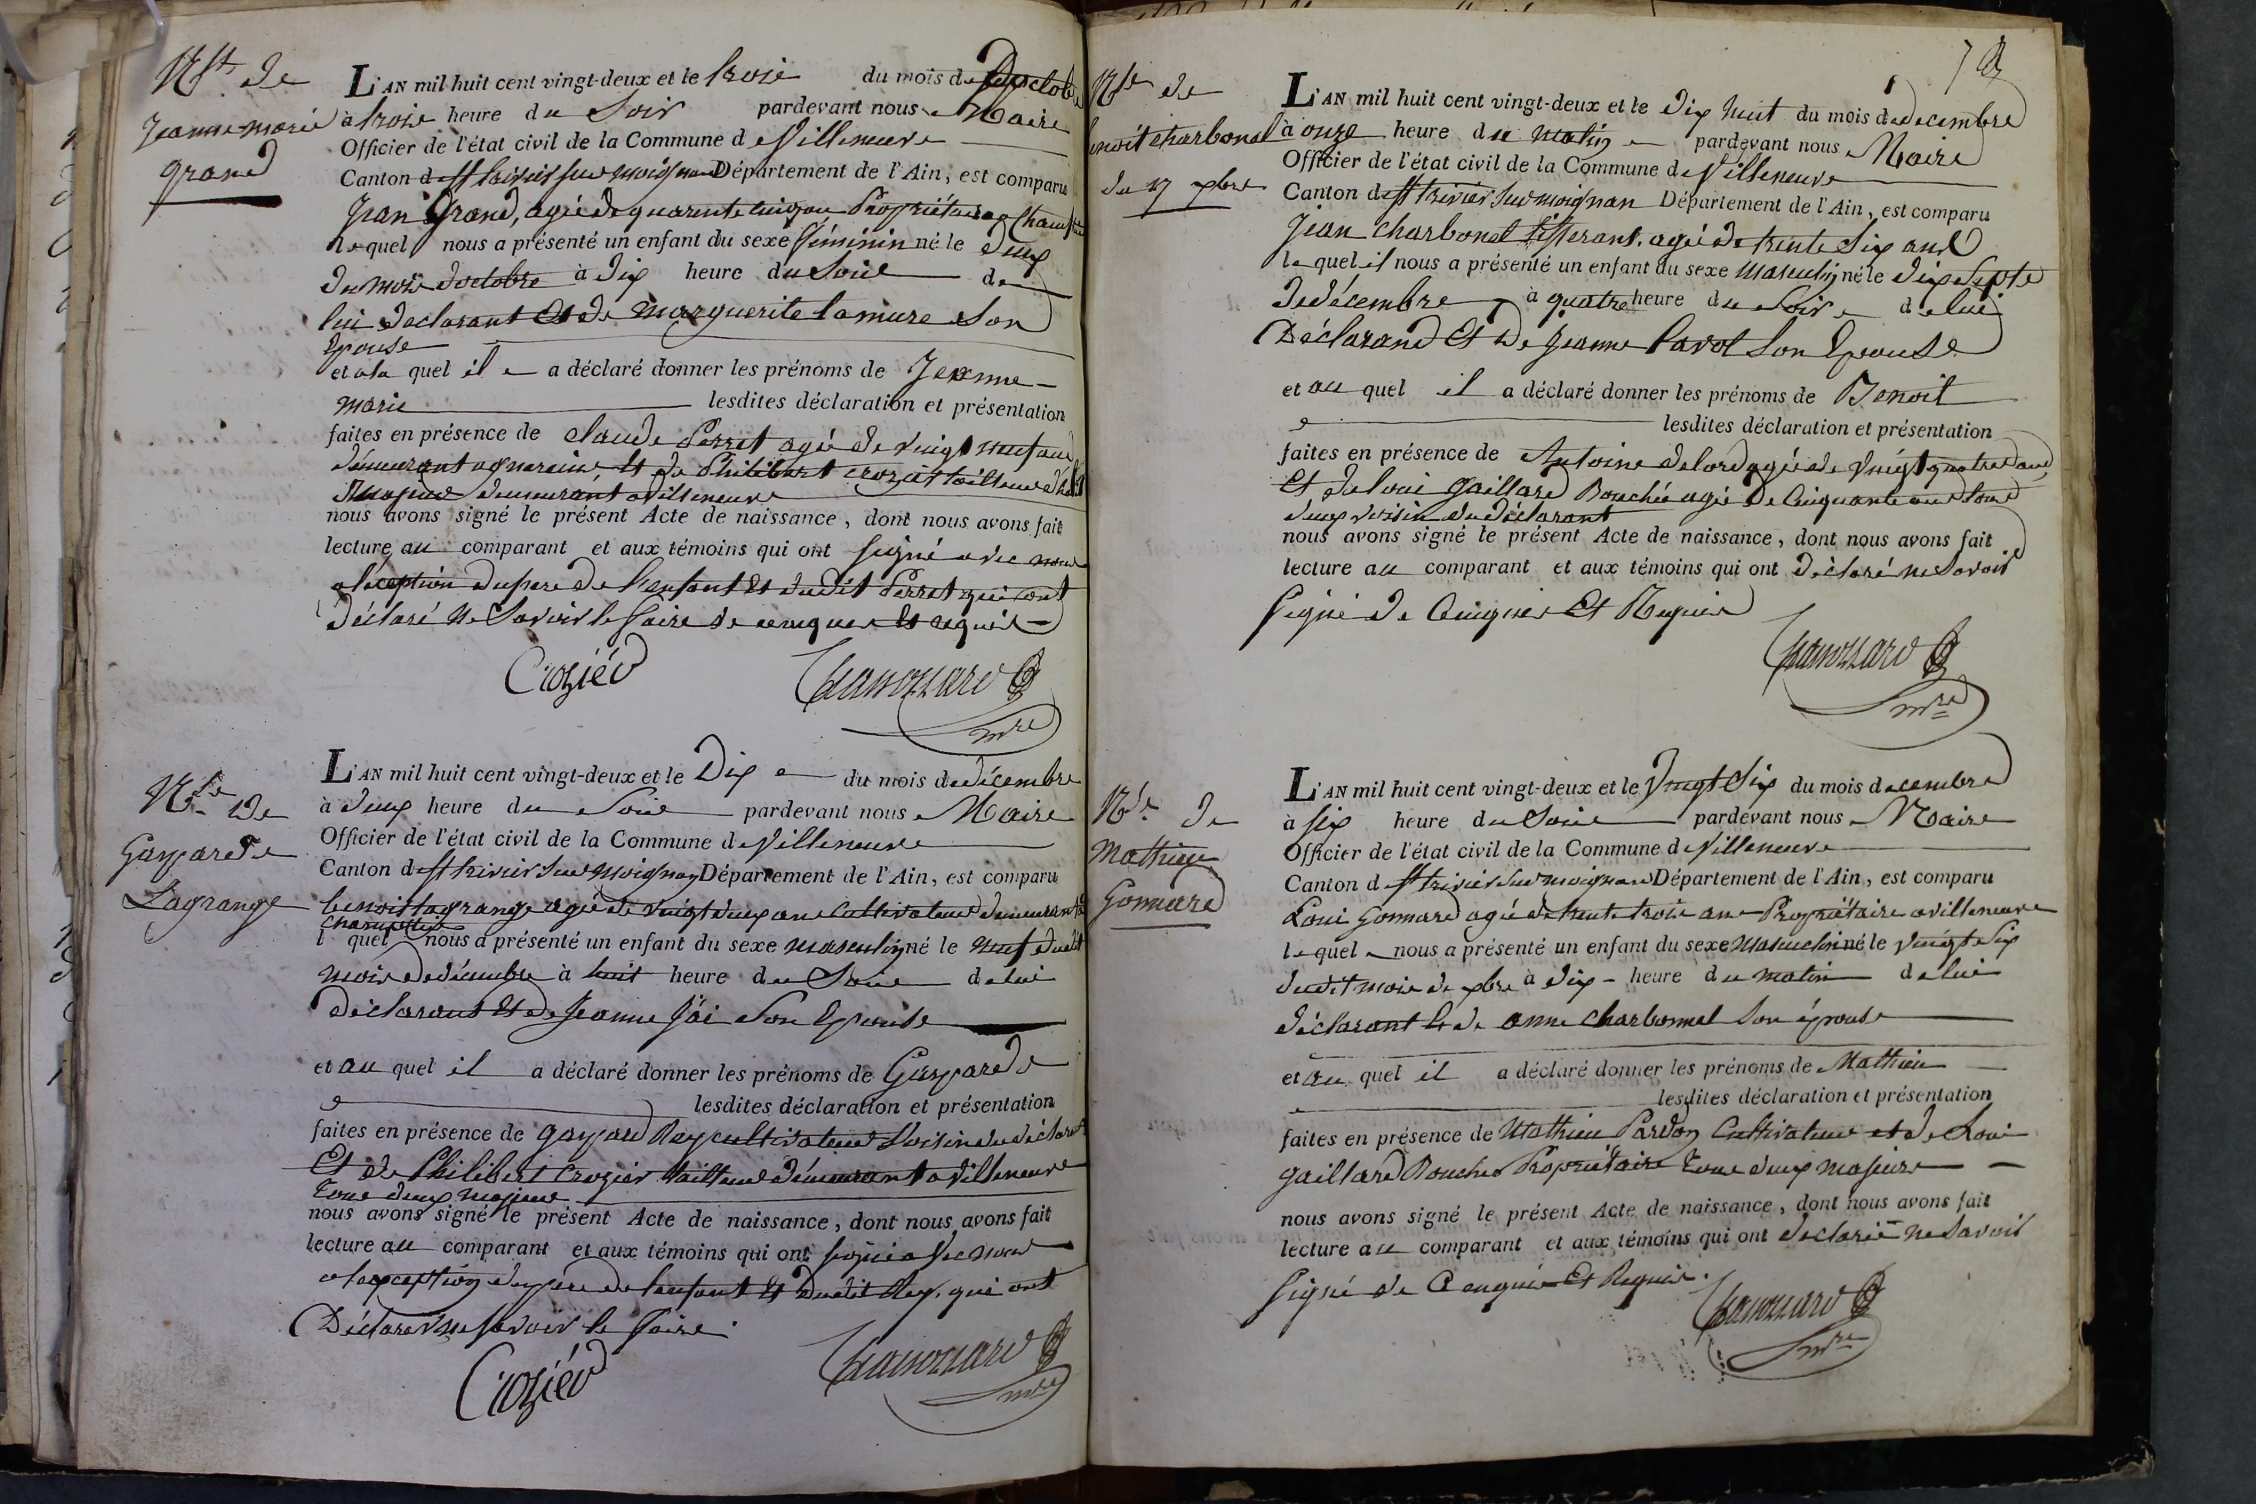 Nce de
Jeanne marie
grand
L'AN mil huit cent vingt-deux et le trois du mois d'octobre
à trois heure du Soir pardevant nous Maire
Officier de l'état civil de la Commune de Villeneuve
Canton de st trivier sur moignan Département de l'Ain, est comparu
Jean Grand, agée de quarente cinq an Propriétaire
le quel nous a présenté un enfant du sexe féminin né le deux
du mois d'octobre à dix heure du Soire de
lui declarant Et de marguerite lamure Son
Epouse
et a la quel il a déclaré donner les prénoms de Jeanne
marie lesdites déclaration et présentation
faites en présence de claude Perret agé de vingt neuf an
demeurant a Et de Philibert crozier tailleur
demeurant a Villeneuve
nous avons signé le présent Acte de naissance, dont nous avons fait
lecture au comparant et aux témoins qui ont signé avec nous
a léception du pere de l'enfant Et dudit Perret qui ont
Déclaré Ne Savoir le faire de ce enquis Et requis
Croziér Chanozzard
mre
Nce De
Gaspard
Lagrange
L'AN mil huit cent vingt-deux et le Dix du mois de décembre
à deux heure du Soire pardevant nous Maire
Officier de l'état civil de la Commune de Villeneuve
Canton de st trivier sur moignan Département de l'Ain, est comparu
benoit lagrange agé de vingt deux ans Cultivateur demeurant
l quel nous a présenté un enfant du sexe masculin né le neuf dudit
mois de décembre à huit heure du Soire de lui
déclarant Et de Jeanne Jai Son Epouse
et au quel il a déclaré donner les prénoms de Gaspard
lesdites déclaration et présentation
faites en présence de gaspard Rey cultivateur Voisin du déclarant
Et de Philibert Crozier tailleur demeurant a Villeneuve
tous deux majeur
nous avons signé le présent Acte de naissance, dont nous avons fait
lecture au comparant et aux témoins qui ont signé avec nous
a lexception du père de lenfant Et dudit Rey, qui ont
Déclaré ne savoir le faire.
Croziér Chanozzard
mre
Nce de
benoit charbonel
du 17 xbre
L'AN mil huit cent vingt-deux et le dix huit du mois de decembre
à onze heure du matin pardevant nous Maire
Officier de l'état civil de la Commune de Villeneuve
Canton de st trivier sur moignan Département de l'Ain, est comparu
Jean charbonel tisserant. agée de trente Six ans
le quel il nous a présenté un enfant du sexe masculin né le dix Septe
de décembre à quatre heure du Soir de lui
Déclarand Et De Jeanne Savot Son Epouse
et au quel il a déclaré donner les prénoms de Benoit
lesdites déclaration et présentation
faites en présence de Antoine delord agée de vingt quatre ans
Et de loui gaillard Bouchée agé de Cinquante ans tous
deux voisin du déclarant
nous avons signé le présent Acte de naissance, dont nous avons fait
lecture au comparant et aux témoins qui ont déclaré ne Savoir
signé de Cenquis Et Requis
Chanozzard
mre
Nce De
Mathieu
Gonnard
L'AN mil huit cent vingt-deux et le Vingt Six du mois decembre
à six heure du Soire pardevant nous Maire
Officier de l'état civil de la Commune de Villeneuve
Canton de st trivier sur moignan Département de l'Ain, est comparu
Loui Gonnard agée de trente trois ans Propriétaire a villeneuve
le quel nous a présenté un enfant du sexe Masculin né le vingt Six
dudit mois de xbre à dix heure du matin de lui
déclarant Et de anne charbonnel Son épouse
et au quel il a déclaré donner les prénoms de Mathieu
lesdites déclaration et présentation
faites en présence de Mathieu Pardon Cultivateur et de Loui
gaillard Boucher Propriétaire tous deux majeurs
nous avons signé le présent Acte de naissance, dont nous avons fait
lecture au comparant et aux témoins qui ont declaré ne Savoir
signé de Cenquis Et Requis.
Chanozzard
mre